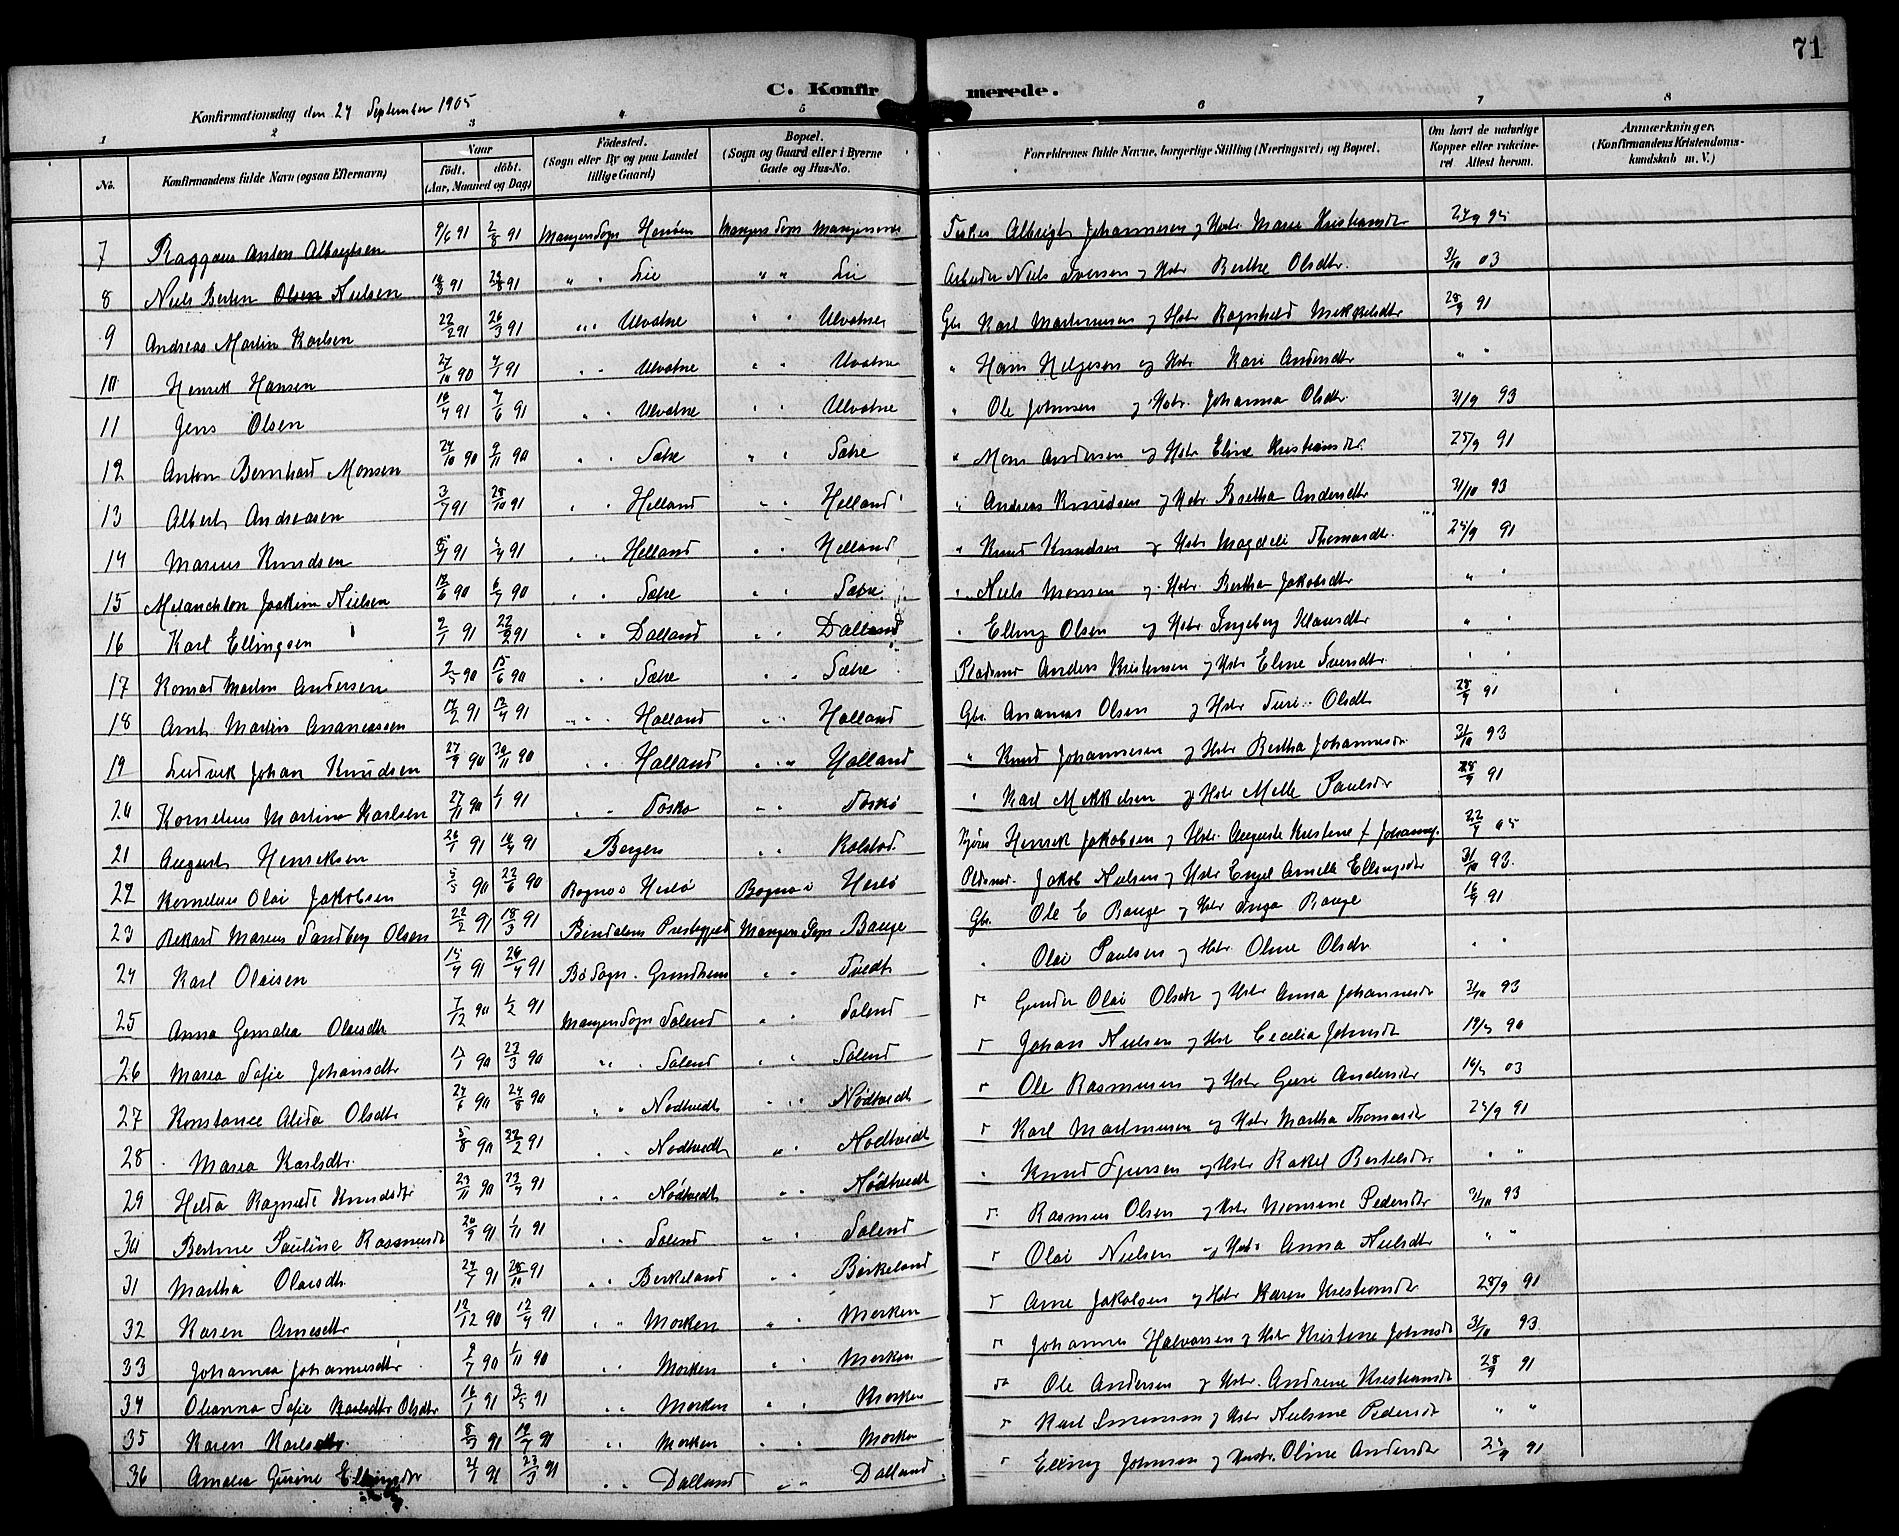 71
C. Konfirmerede.
Konfirmationsdag den 24 September 1905
1 2 3 4 5 6 7 8
No. Konfirmandens fulde Navn (ogsaa Efternavn) Naar født. døbt. (Aar, Maaned og Dag) Fødested. (Sogn eller By og paa Landet tillige Gaard) Bopæl. (Sogn og Gaard eller i Byerne Gade og Hus-No. Forældrenes fulde Navne, borgerlige Stilling (Næringsvei) og Bopæl. Om havt de naturlige Kopper eller vakcineret Attest herom. Anmærkninger. (Konfirmandens Kristendomskundskab m. V.)
7 Anton Albregtsen 9/6 91 2/8 91 Manger Sogn Manger Sogn Mangersnes Fisker Albrigt Johannesen og Hstr Marie Kristiansdtr
8 Niels Berten Olsen Nielsen 91 91 " " Lie " " Lie Arbeider Niels Iversen og Hstr Berthe Olsdtr 31/10 03
9 Andreas Martin Karlsen 22/2 91 26/3 91 " " Ulvatne " " Ulvatne Gbr Karl Martinusen og Hstr Ragnhild Mikkelsdtr 28/9 91
10 Henrik Hansen 27/10 90 4/1 91 " " Ulvatne " " Ulvatne " Hans Helgesen og Hstr Kari Andersdtr " "
11 Jens Olsen 91 7/6 91 " " Ulvatne " " Ulvatne " Ole Johnsen og Hstr. Johanna Olsdtr 31/9 93
12 Anton Bernhard Monsen 24/10 90 9/11 90 " " Sætre " " Sætre " Mons Andersen og Hstr Eline Kristiansdtr. 25/9 91
13 Albert Andreasen 3/7 91 91 " " Helland " " Helland " Andreas Knudsen og Hstr Bertha Andersdtr 31/10 93
14 Marius Knudsen 91 91 " " Helland " " Helland " Knud Knudsen og Hstr Magdeli Thomasdtr. 25/9 91
15 Melanchton Joakim Nielsen 90 6/7 90 " " Sætre " " Sætre " Niels Monsen og Hstr Bertha Jakobsdtr " "
16 Karl Ellingsen 91 22/2 91 " " Dalland " " Dalland " Elling Olsen og Hstr Ingeborg Klausdtr " "
17 Konrad Martin Andersen 2/5 90 15/6 90 " " Sætre " " Sætre Pladsmd Anders Kristensen og Hstr Eline Svendtr " "
18 Arnt Martin Ananeassen 91 91 " " Halland " " Halland Gbr. Ananias Olsen og Hstr Turi Olsdtr 28/9 91
19 Ludvik Johan Knudsen 27/9 90 30/11 90 " " Halland " " Halland " Knud Johannesen og Hstr Bertha Johannesdtr 31/10 93
20 Kornelius Martin Karlsen 27/11 90 1/1 91 " " Toskø " " Toskø " Karl Mikkelsen og Hstr Mille Paulsdtr 28/9 91
21 August Henriksen 91 91 Bergen " " Kolstad Henrik Jakobsen og Hstr. Auguste Kristine f Johannes. 05
22 Kornelius Olai Jakobsen 5/5 90 22/6 90 Bognø i Herlø Bognø i Herlø Pldsmd. Jakob Nielsen og Hstr Engel Amelle Ellingsdtr 31/10 93.
23 Rikard Marius Sandberg Olsen 22/2 91 18/3 91 Bindalens Prestegjeld Manger Sogn Bauge Gbr. Ole E Bauge og Hstr Inga Bauge 91
24 Karl Olaisen 91 26/4 91 Bø Sogn. Grindheim " " Tvedt " Olai Paulsen og Hstr. Oline Olsdtr " "
25 Anna Gemalia Olaisdtr 7/12 90 1/2 91 Manger Sogn Soland " " Soland Do Olai Olsen og Hstr Anna Johannesdtr 31/10 93
26 Maria Sofie Johansdtr 90 23/3 90 " " Soland " " Soland " Johan Nielsen og Hstr Cecelia Johnsdtr 90
27 Konstance Alida Olsdtr 24/6 90 24/8 90 " " Nødtvedt " " Nødtvedt " Ole Rasmusen og Hstr Guri Andersdtr 03
28 Maria Karlsdtr. 5/8 90 22/2 91 " " Nødtvedt " " Nødtvedt " Karl Martinusen og Hstr Martha Thomasdtr 25/9 91
29 Helda Ragnilde Knudsdtr 23/11 90 91 " " Nødtvedt " " Nødtvedt " Knud Sjursen og Hstr Rakel Bertelsdtr " "
30 Bertine Pauline Rasmusdtr 20/9 91 1/11 91 " " Soland " " Soland " Rasmus Olsen og Hstr Monsine Pedersdtr 31/10 93
31 Martha Olaisdtr. 91 91 " " Birkeland " " Birkeland " Olai Nielsen og Hstr Anna Nielsdtr " "
32 Karen Arnesdtr 12/12 90 91 " " Morken " " Morken " Arne Jakobsen og Hstr Karen Kristiansdtr 28/9 91
33 Johanna Johannesdtr 90 1/11 90 " " Morken " " Morken " Johannes Halvorsen og Hstr Kristine Johnsdtr 31/10 93
34 Olianna Sofie Karlsdtr Olsdtr 91 3/5 91 " " Morken " " Morken " Ole Andersen og Hstr. Andrine Kristiansdtr 28/9 91
35 Karen Karlsdtr. 91 91 " " Morken " " Morken " Karl Simonsen og Hstr Nielsine Pedersdtr " "
36 Amalia Gurine Ellingsdtr 91 91 " " Dalland " " Dalland " Elling Johnsen og Hustr. Oline Andersdtr 91